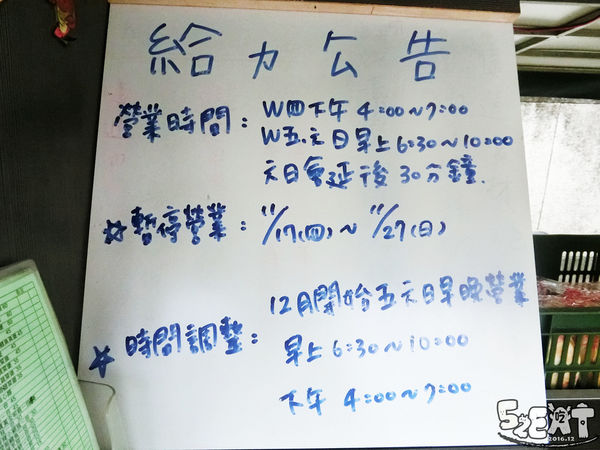 給力公告
營業時間：W四下午 4:00~7:00
W五.六日早上6:30~10:00
六日會延後30分鐘.
☆暫停營業：11/17(四)~11/27(日)
12月開始五六日早晚營業
☆時間調整：早上6:30~10:00
下午 4:00~7:00
52EAT
2016.12